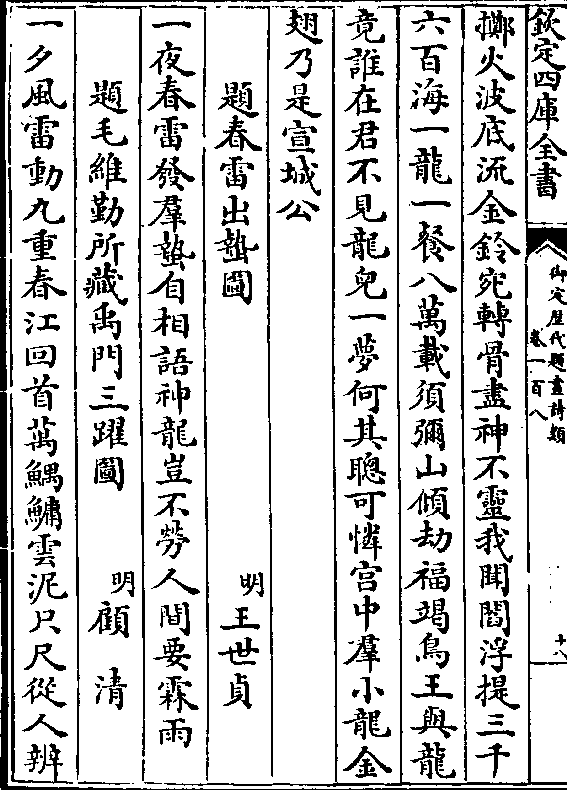 欽定四庫全書
御定歴代題畫詩類
卷一百八
十八
擲火波底流金鈴宛轉骨盡神不靈我聞閻浮提三千
六百海一龍一餐八萬載須彌山傾劫福竭鳥王與龍
竟誰在君不見龍兒一夢何其聰可憐宮中羣小龍金
翅乃是宣城公
題春雷出蟄圖
明王世貞
一夜春雷發羣蟄自相語神龍豈不勞人間要霖雨
題毛維勤所藏禹門三躍圖
明顧清
一夕風雷動九重春江回首萬鰅鱅雲泥只尺從人辨